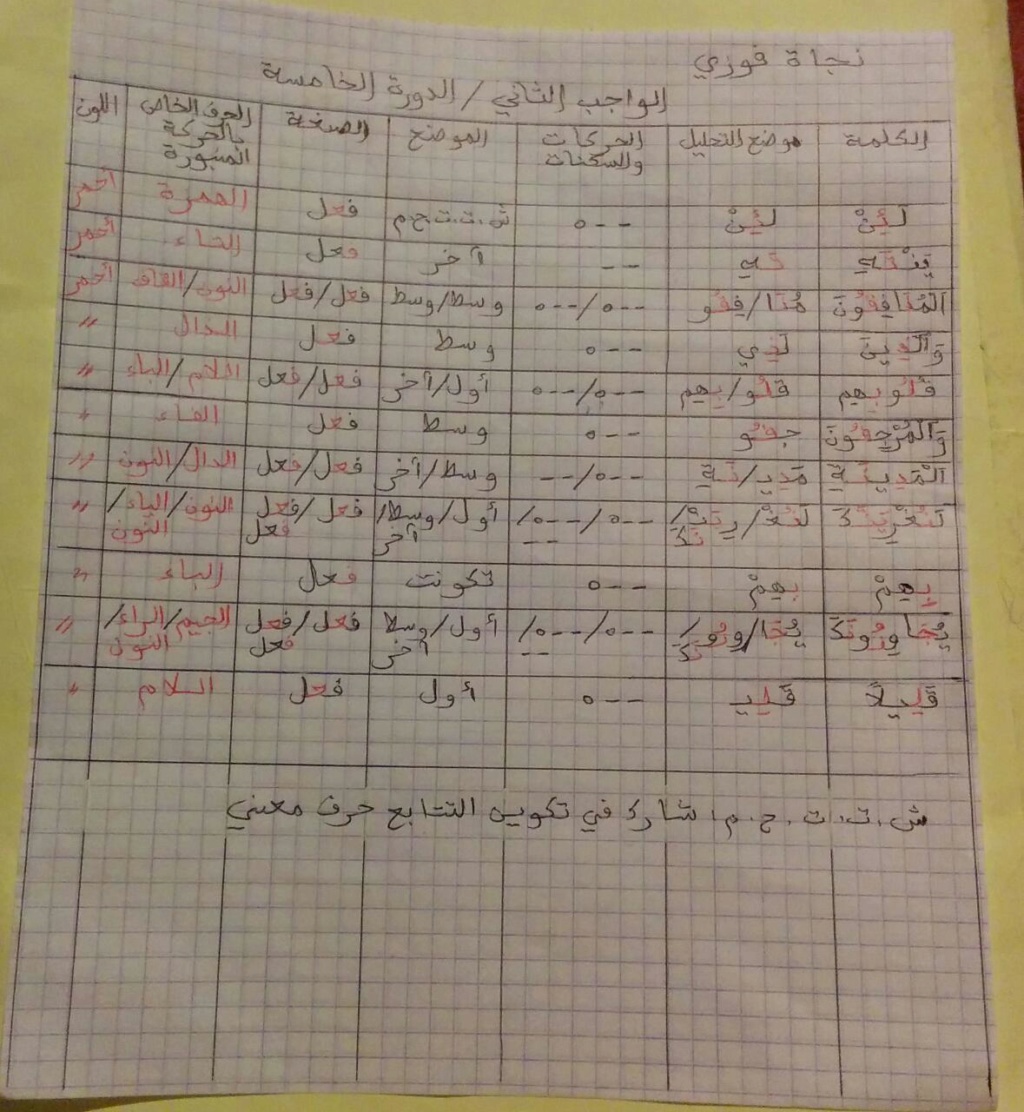 نجاة فوزي
الواجب الثاني / الدورة الخامسة
الكلمة موضع التحليل الحركات والسكنات الموضع الصفة الحرف الخاص بالحركة المبتورة اللون
لَئِنْ لَئِنْ --ه ش.ت.ت.ح.م فعل الهمزة أحمر
يَنْتَهِ تَهِ -- آخر فعل التاء أحمر
الْمُنَافِقُونَ مُنَا/فِقُو --ه/--ه وسط/وسط فعل/فعل النون/القاف أحمر
وَالَّذِينَ لَذِي --ه وسط فعل الذال "
قُلُوبِهِم قُلُو/بِهِم --ه/--ه أول/آخر فعل/فعل اللام/الهاء "
وَالْمُرْجِفُونَ جِفُو --ه وسط فعل الفاء "
الْمَدِينَةِ مَدِيـ/نَةِ --ه/-- وسط/آخر فعل/فعل الدال/النون "
لَنُغْرِيَنَّكَ لَنُغْ/رِيَنْ/نَكَ --ه/--ه/-- أول/وسط/آخر فعل/فعل فعل النون/الياء/النون "
بِهِمْ بِهِمْ --ه تكونت فعل الهاء "
يُجَاوِرُونَكَ يُجَا/وِرُو/نَكَ --ه/--ه/-- أول/وسط آخر فعل/فعل فعل الجيم/الراء/النون "
قَلِيلاً قَلِيـ --ه أول فعل اللام "
ش.ت.ت.ح.م: شارك في تكوين التتابع حرف معني